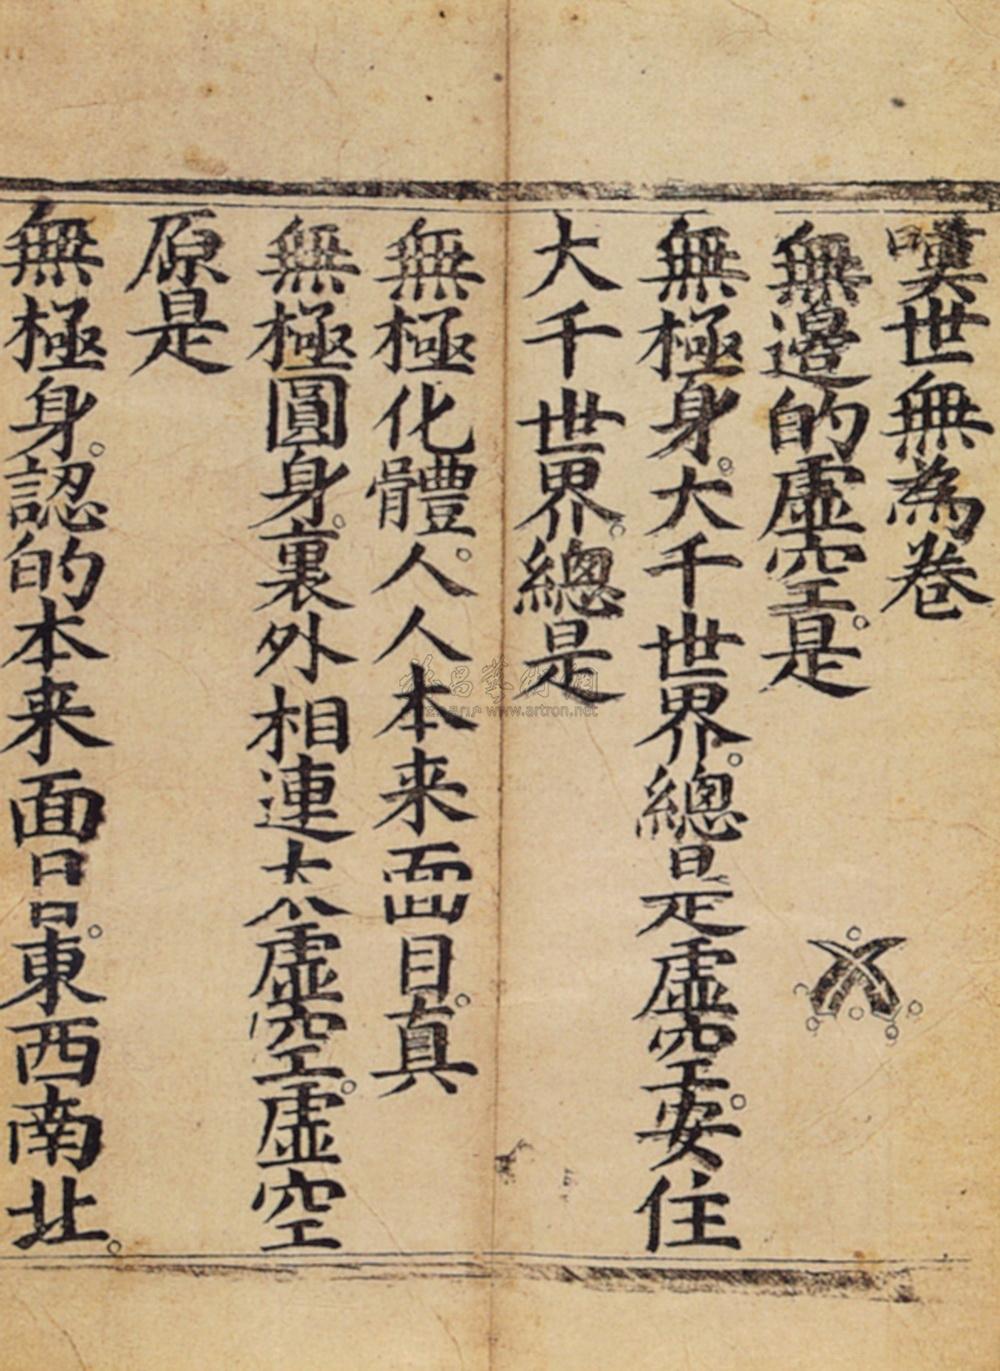 嘆世無為卷
無邊的虛空。是
無極身。大千世界。總是虛空。安住
大千世界。總是
無極化體。人人本来面目。真
無極圓身。裏外相連太虛空。虛空
原是
無極身。認的本来面目。東西南北。
www.artron.net